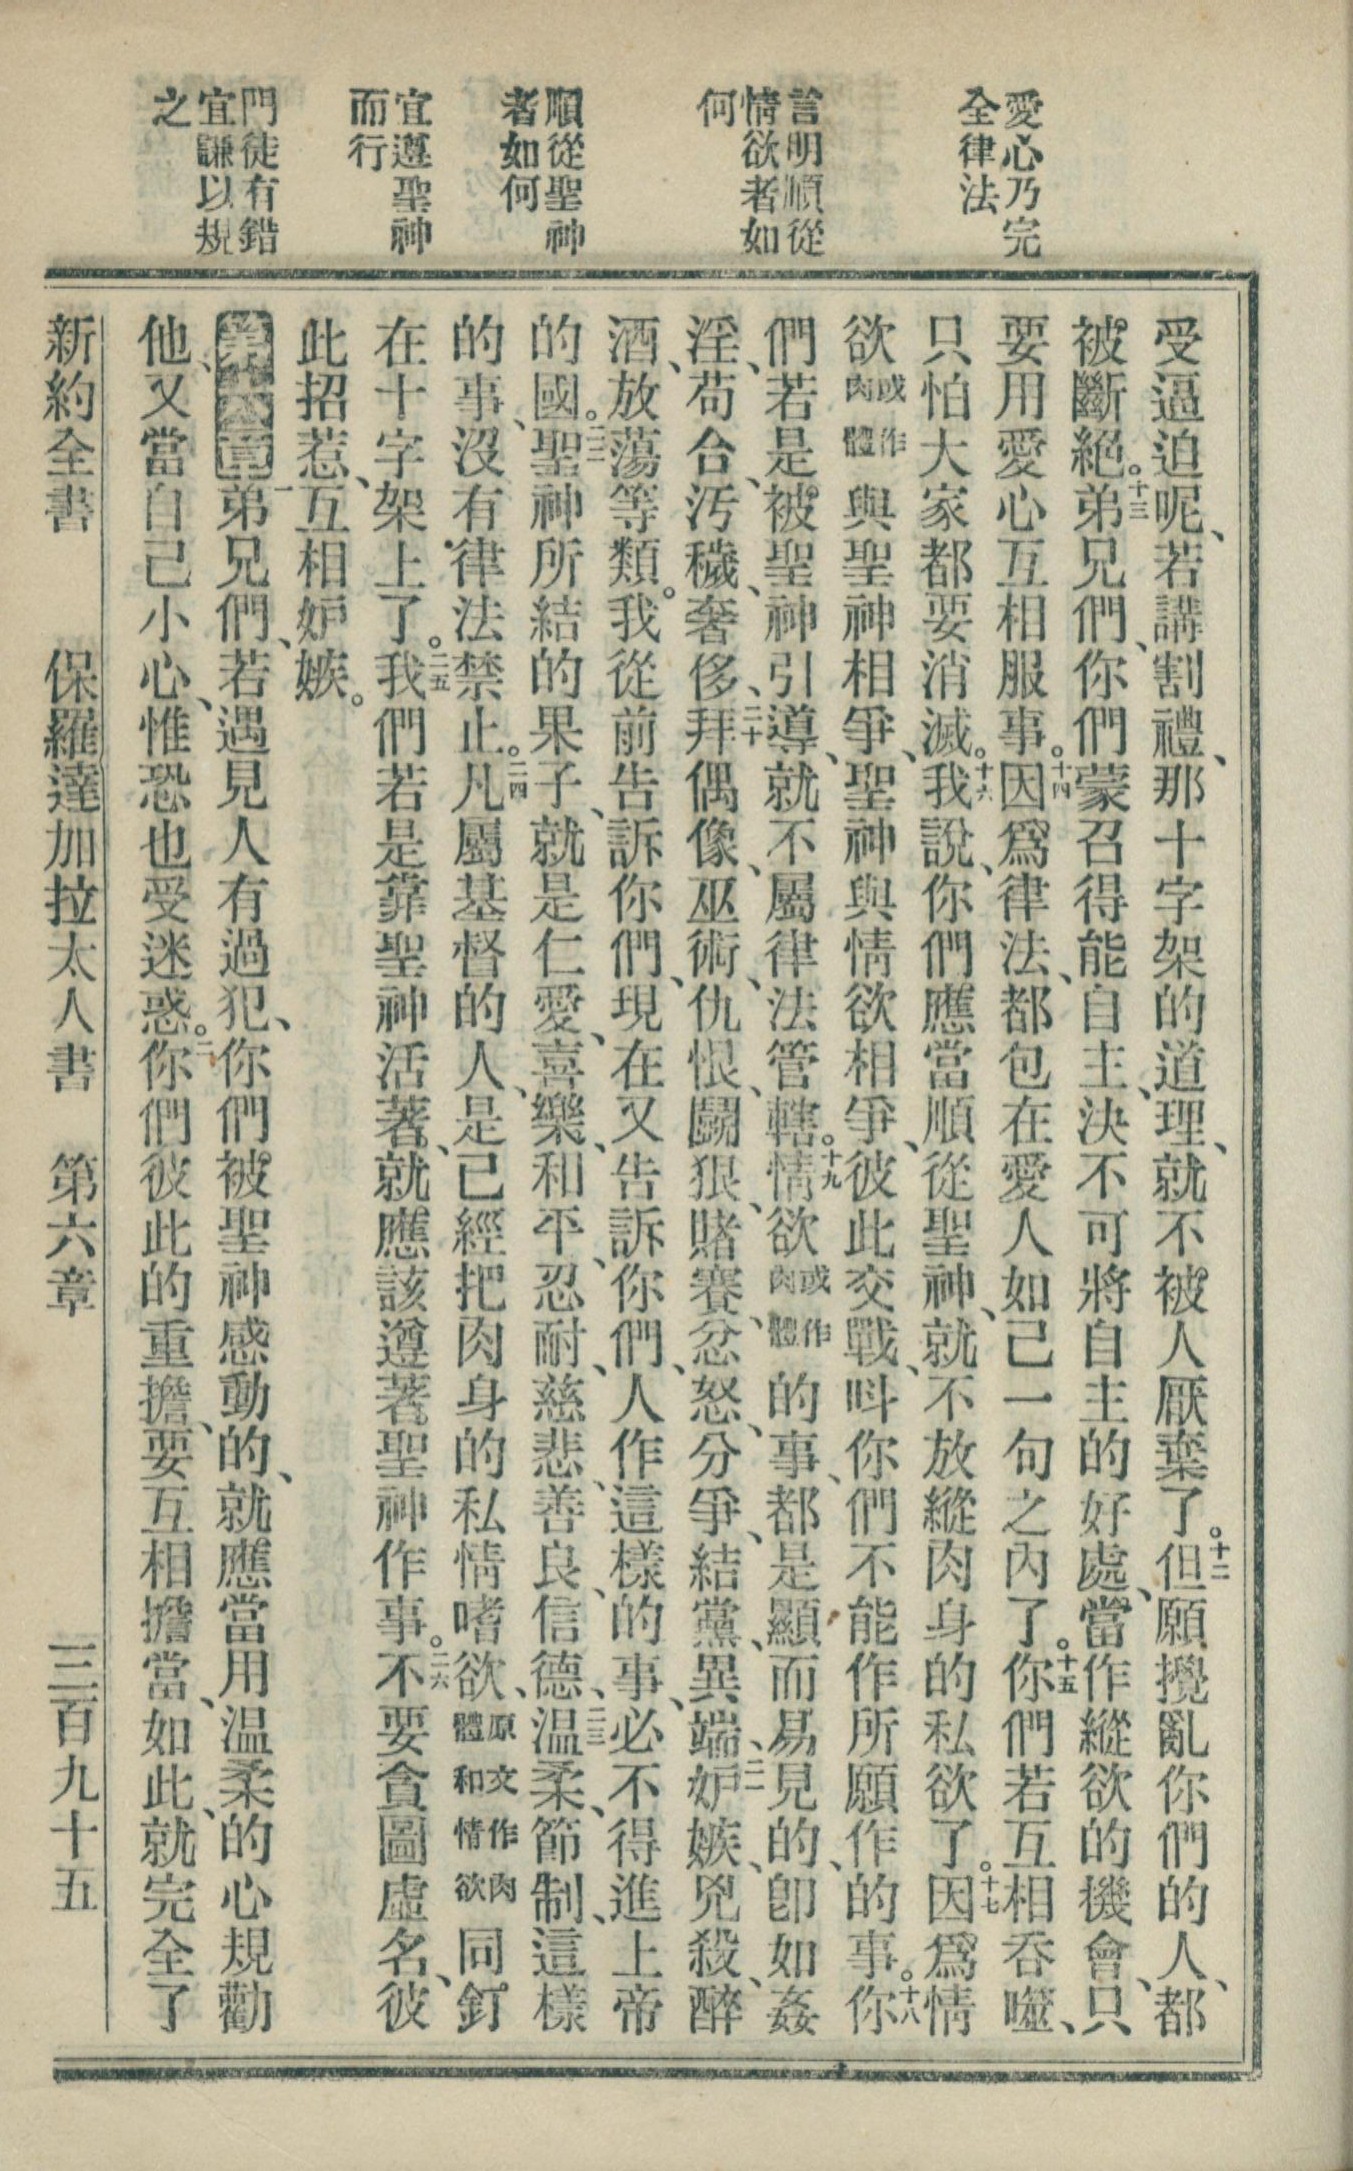 愛心乃完
全律法
言明順從
情欲者如
何
順從聖神
者如何
宜遵聖神
而行
門徒有錯
宜謙以規
之
受逼迫呢、若講割禮、那十字架的道理、就不被人厭棄了。十二但願攪亂你們的人、都
被斷絕。十三弟兄們、你們蒙召得能自主、決不可將自主的好處、當作縱欲的機會、只
要用愛心互相服事。十四因爲律法、都包在愛人如己一句之內了。十五你們若互相吞噬、
只怕大家都要消滅。十六我說、你們應當順從聖神、就不放縱肉身的私欲了。十七因爲情
欲或作肉體與聖神相爭、聖神與情欲相爭、彼此交戰、呌你們不能作所願作的事。十八你
們若是被聖神引導、就不屬律法管轄。十九情欲或作肉體的事、都是顯而易見的、卽如姦
淫、苟合、汚穢、奢侈、二十拜偶像、巫術、仇恨、鬬狠、賭賽、忿怒、分爭、結黨、異端、二一妒嫉、兇殺、醉
酒、放蕩等類。我從前告訴你們、現在又告訴你們、人作這樣的事、必不得進上帝
的國。二二聖神所結的果子、就是仁愛、喜樂、和平、忍耐、慈悲、善良、信德、二三温柔、節制、這樣
的事、沒有律法禁止。二四凡屬基督的人、是已經把肉身的私情嗜欲、原文作肉體和情欲同釘
在十字架上了。二五我們若是靠聖神活著、就應該遵著聖神作事。二六不要貪圖虛名、彼
此招惹、互相妒嫉。
第六章一弟兄們、若遇見人有過犯、你們被聖神感動的、就應當用温柔的心規勸
他、又當自己小心、惟恐也受迷惑。二你們彼此的重擔、要互相擔當、如此、就完全了
新約全書　保羅達加拉太人書　第六章　三百九十五